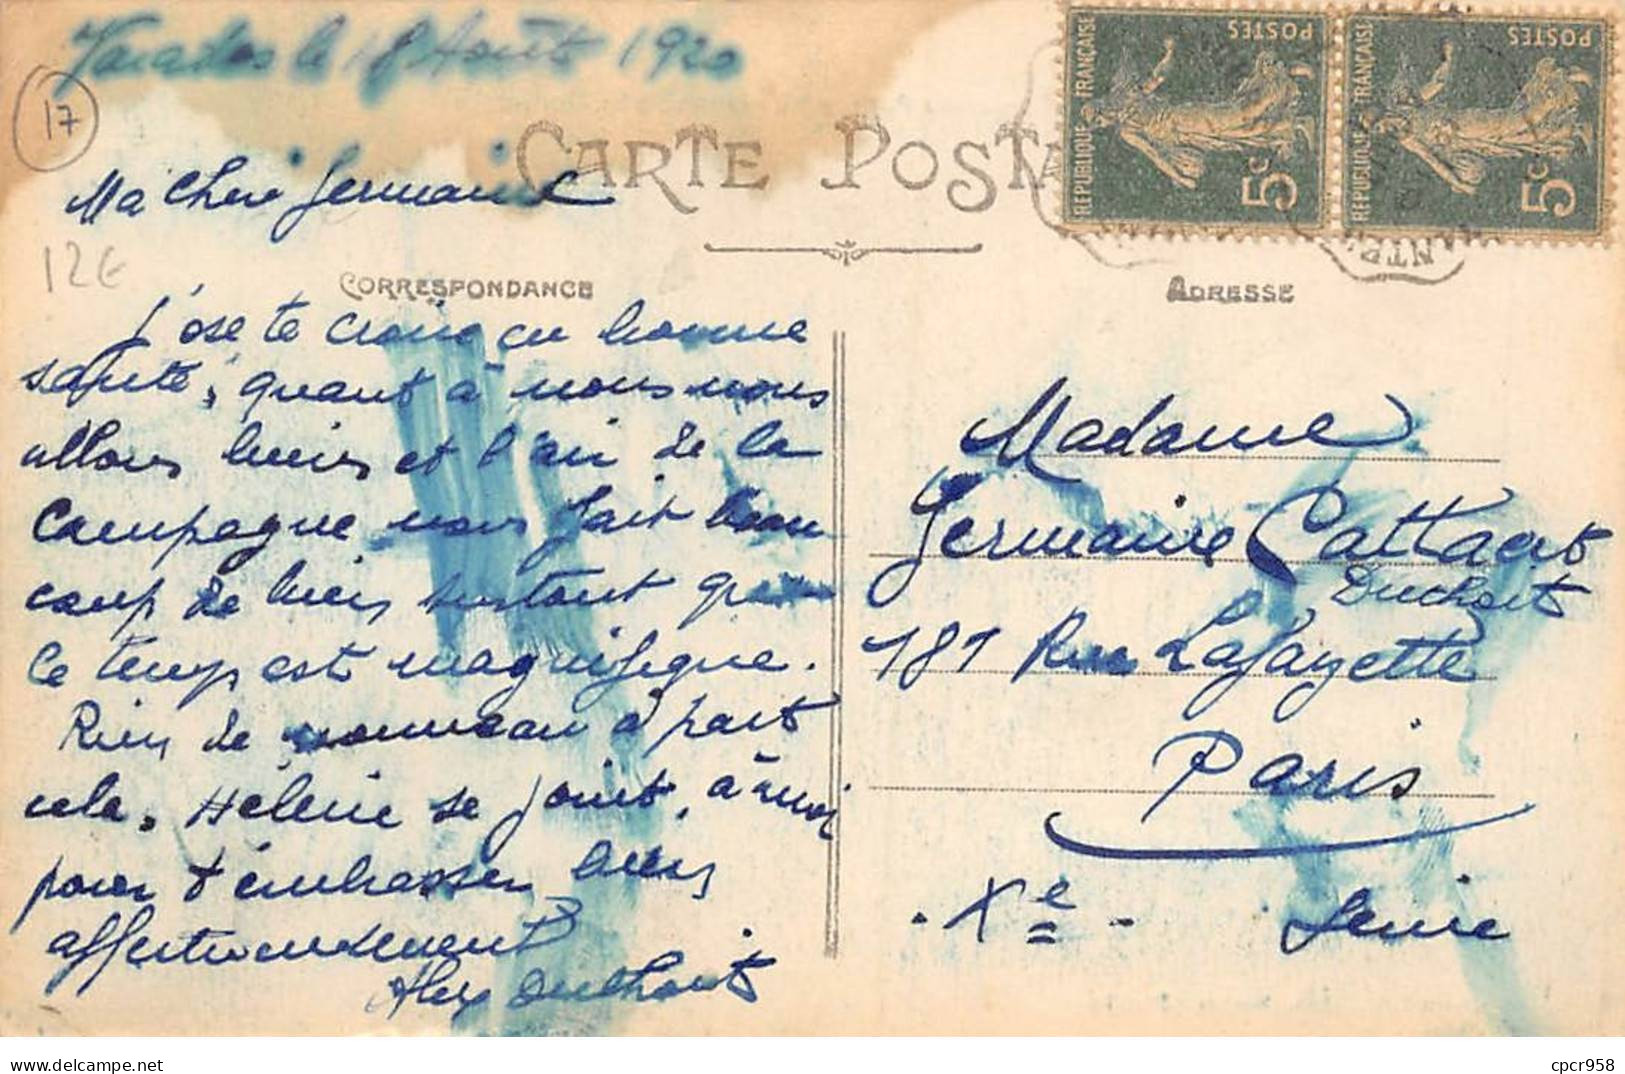 Varades le 18 Août 1920
17
CARTE POSTA
Ma chère Germaine
12€
CORRESPONDANCE
J'ose te croire en bonne
santé, quant à nous nous
allons bien et l'air de la
campagne nous fait beau
coup de bien surtout que
le temps est magnifique.
Rien de nouveau à part
cela. Hélène se joint à moi
pour t'embrasser bien
affectueusement
Alex Duchort
POSTES
RÉPUBLIQUE FRANÇAISE
5c
POSTES
RÉPUBLIQUE FRANÇAISE
5c
ADRESSE
Madame
Germaine Cattaert
Duchort
181 Rue Lafayette
Paris
Xe - Seine
delcampe.net
cpcr958